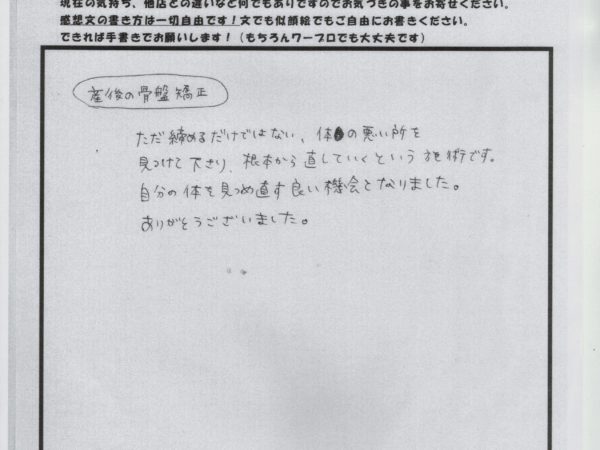 現在の気持ち、他店との違いなど何でもありですのでお気づきの事をお寄せください。
感想文の書き方は一切自由です！文でも似顔絵でもご自由にお書きください。
できれば手書きでお願いします！（もちろんワープロでも大丈夫です）
産後の骨盤矯正
ただ締めるだけではない、体の悪い所を
見つけて下さり、根本から直していくという施術です。
自分の体を見つめ直す良い機会となりました。
ありがとうございました。